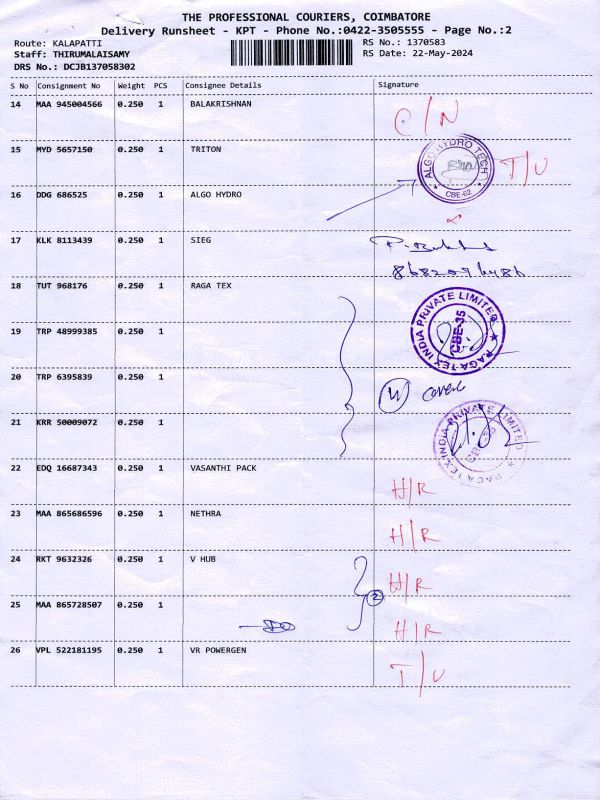 THE PROFESSIONAL COURIERS, COIMBATORE
Delivery Runsheet - KPT - Phone No.:0422-3505555 - Page No.:2
Route: KALAPATTI
Staff: THIRUMALAISAMY
DRS No.: DCJB137058302
RS No.: 1370583
RS Date: 22-May-2024
S No Consignment No Weight PCS Consignee Details Signature
14 MAA 945004566 0.250 1 BALAKRISHNAN
C/N
15 MYD 5657150 0.250 1 TRITON
T/U
ALGO HYDRO TECH
CBE-62
16 DDG 686525 0.250 1 ALGO HYDRO
17 KLK 8113439 0.250 1 SIEG
18 TUT 968176 0.250 1 RAGA TEX
RAGATEX INDIA PRIVATE LIMITED
CBE-35
19 TRP 48999385 0.250 1
20 TRP 6395839 0.250 1
21 KRR 50009072 0.250 1
RAGATEX INDIA PRIVATE LIMITED
22 EDQ 16687343 0.250 1 VASANTHI PACK
H/R
23 MAA 865686596 0.250 1 NETHRA
H/R
24 RKT 9632326 0.250 1 V HUB
H/R
2
25 MAA 865728507 0.250 1
H/R
26 VPL 522181195 0.250 1 VR POWERGEN
T/U